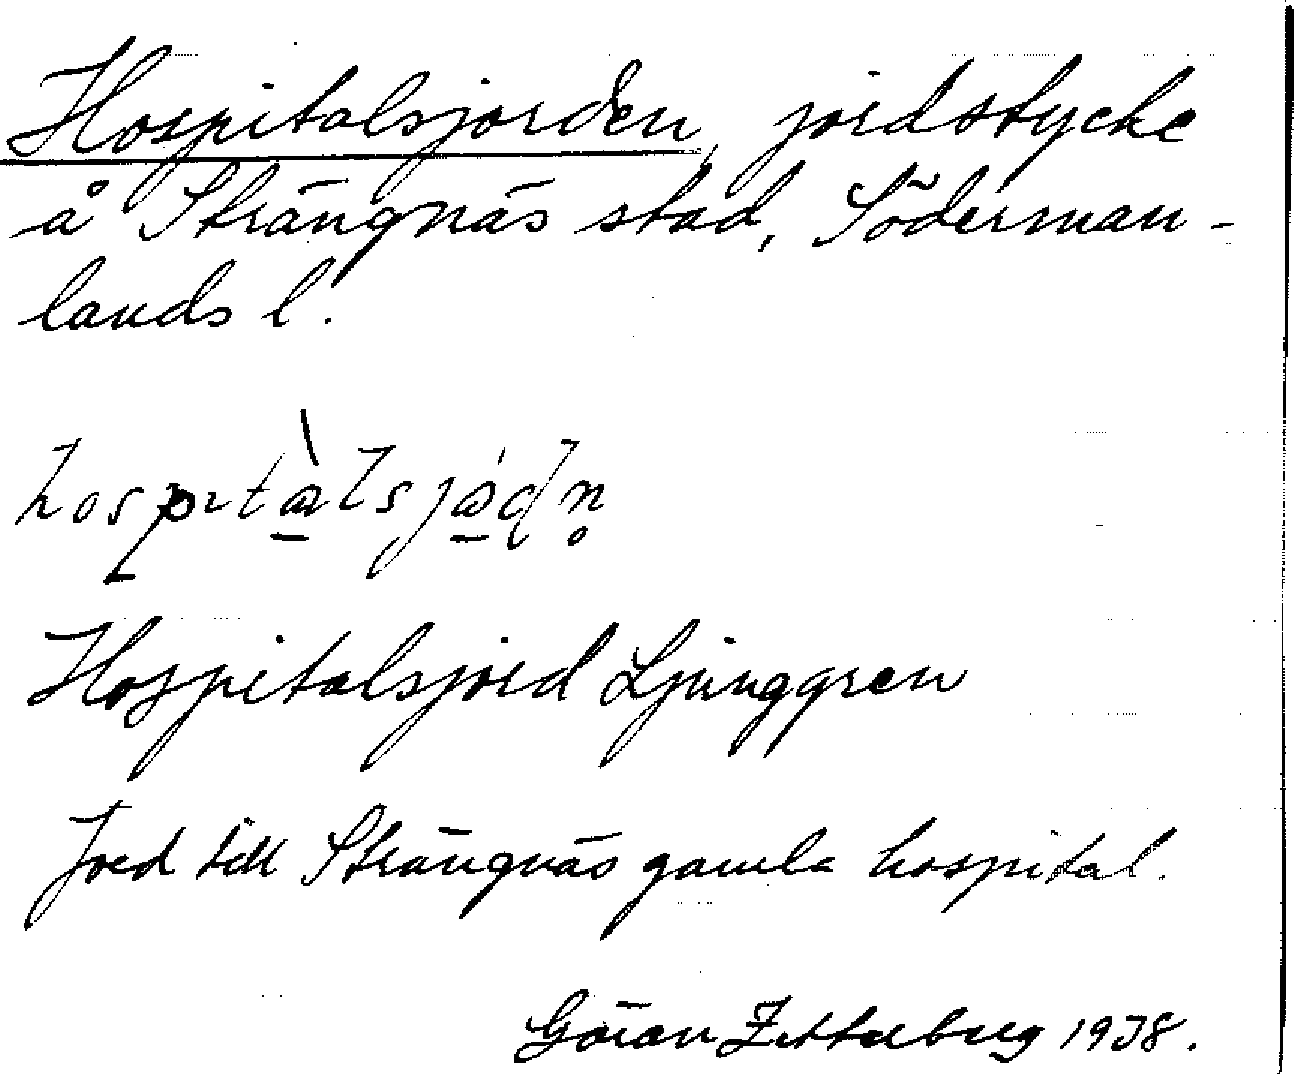 Hospitalsjorden, jordstycke
å Strängnäs stad, Söderman-
lands l.
Hospitalsjord Ljunggren
Jord till Strängnäs gamla hospital.
Göran Zetterberg 1938.